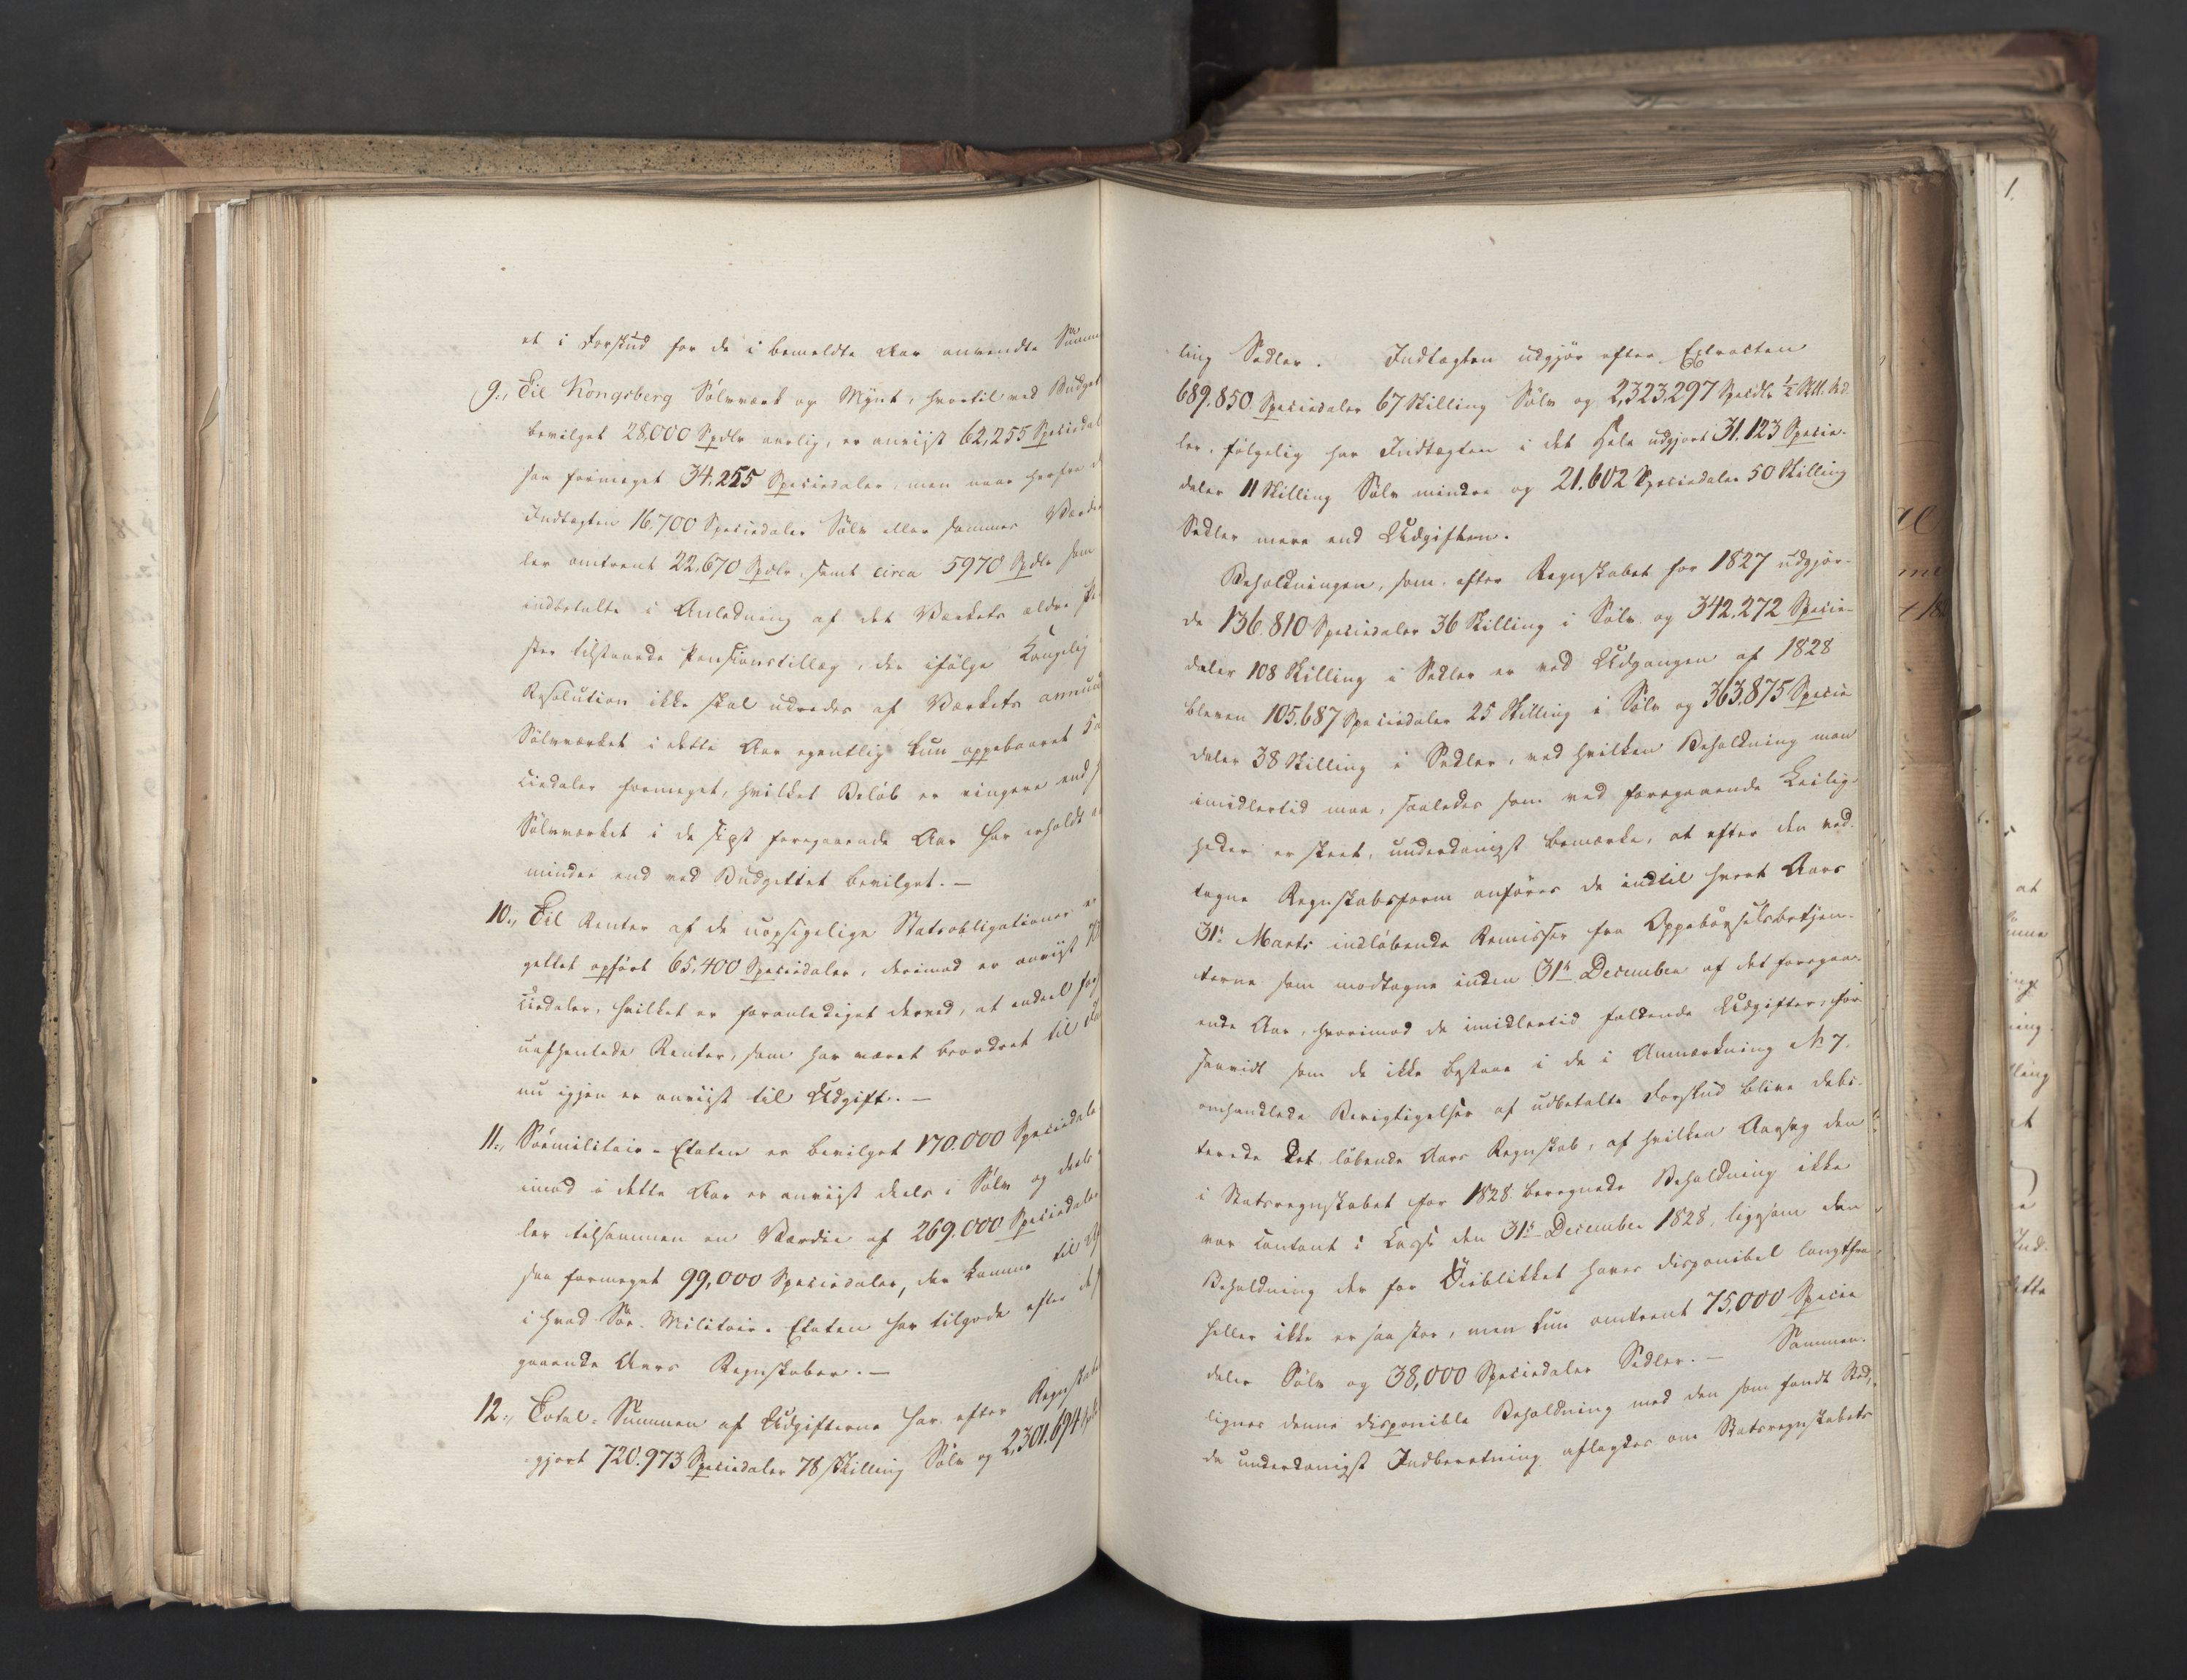 et i Forskud for de i bemeldte Aar anvendte
9., Til Kongsberg Sølvværk og Mynt, hvortil ved Budget
bevilget 28,000 Spdlr aarlig, er anviist 62,255 Speciedal
saa formeget 34.255 Speciedaler, men naar herfra
Indtægten 16.700 Speciedaler Sølv eller sammes Værdie
ler omtrent 22,670 Spdlr, samt circa 5970 Spdlr som
indbetalte i Anledning af det Værkets ældre
ster tilstaaede Pensionstillæg, der ifølge Kongelig
Resolution ikke skal udredes af Værkets
Sølvværket i dette Aar egentlig kun oppebaaret
ciedaler formeget, hvilket Beløb er ringere end
Sølvværket i de sidst foregaaende Aar har erholdt
mindre end ved Budgettet bevilget. —
10., Til Renter af de uopsigelige Statsobligationer er
gettet opført 65,400 Speciedaler, derimod er anviist
ciedaler, hvilket er foranlediget derved, at endeel
uafhentede Renter, som har været beordret til
nu igjen er anviist til Udgift. —
11., Søemilitair-Etaten er bevilget 170.000 Speciedale
imod i dette Aar er anviist deels i Sølv og deels
ler tilsammen en Værdie af 269.000 Speciedale
saa formeget 99,000 Speciedaler, der komme til
i hvad Søe-Militair-Etaten har tilgode efter de
gaaende Aars Regnskaber. —
12., Total-Summen af Udgifterne har efter Regnskabe
gjort 720.973 Speciedaler 78 Skilling Sølv og 2,301.694
ling Sedler. Indtægten udgjør efter Extracten
689.850 Speciedaler 67 Skilling Sølv og 2,323,297 Specdlr ½ Skll. Sed
ler, følgelig har Indtægten i det Hele udgjort 31.123 Specie-
daler 11 Skilling Sølv mindre og 21.602 Speciedaler 50 Skilling
Sedler mere end Udgiften.
Beholdningen, som efter Regnskabet for 1827 udgjor-
de 136.810 Speciedaler 36 Skilling i Sølv og 342.272 Specie-
daler 108 Skilling i Sedler er ved Udgangen af 1828
bleven 105.687 Speciedaler 25 Skilling i Sølv og 363,875 Specie
daler 38 Skilling i Sedler, ved hvilken Beholdning man
imidlertid maa, saaledes som ved foregaaende Leilig-
heder er skeet, underdanigst bemærke, at efter den ved-
tagne Regnskabsform anføres de indtil hvert Aars
31te Marts indløbende Remisser fra Oppebørselsbetjen-
terne som modtagne inden 31te December af det foregaa-
ende Aar, hvorimod de imidlertid faldende Udgifter, for-
saavidt som de ikke bestaae i de i Anmærkning No 7.
omhandlede Berigtigelser af udbetalte Forskud blive debi-
terede det løbende Aars Regnskab, af hvilken Aarsag den
i Statsregnskabet for 1828 beregnede Beholdning ikke
var contant i Casse den 31te December 1828, ligesom den
Beholdning der for Øieblikket haves disponibel langtfra
heller ikke er saa stor, men kun omtrent 75,000 Specie
daler Sølv og 38,000 Speciedaler Sedler. — Sammen-
lignes denne disponible Beholdning med den som fandt Sted,
da underdanigst Indberetning aflagdes om Statsregnskabets
1.